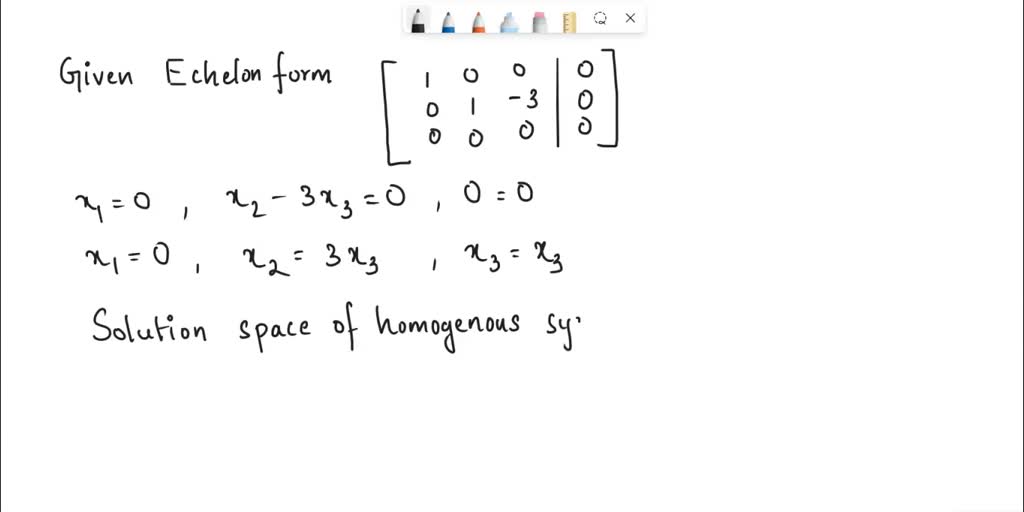 Given Echelon form [1 0 0 | 0
0 1 -3 | 0
0 0 0 | 0]
x₁ = 0 , x₂ - 3x₃ = 0 , 0 = 0
x₁ = 0 , x₂ = 3x₃ , x₃ = x₃
Solution space of homogenous sy